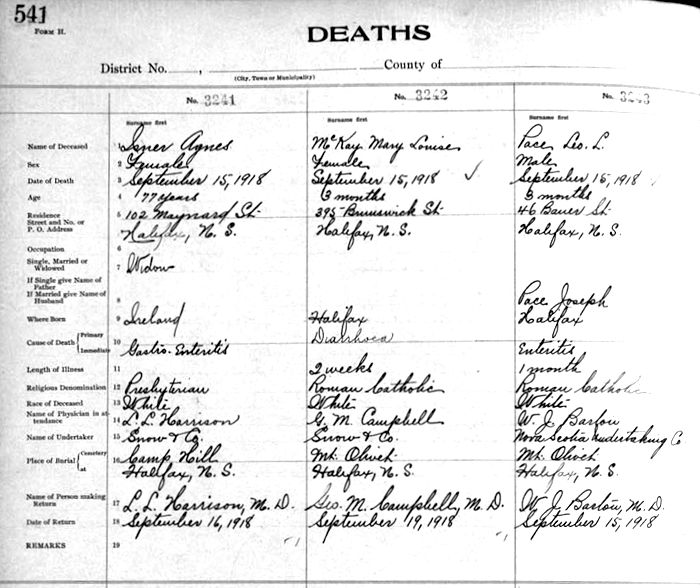 541
FORM H.
DEATHS
District No. , County of
(City, Town or Municipality)
No. 3241 No. 3242 No. 3243
Surname first Surname first Surname first
Name of Deceased 1 Agnes McKay Mary Louise Pace Leo. L.
Sex 2 Female Female Male
Date of Death 3 September 15, 1918 September 15, 1918 ✓ September 15, 1918
Age 4 77 years 3 months 3 months
Residence Street and No. or P. O. Address 5 102 Maynard St. 395 Brunswick St. 46 Bauer St.
Halifax, N. S. Halifax, N. S. Halifax, N. S.
Occupation 6
Single, Married or Widowed 7 Widow
If Single give Name of Father
If Married give Name of Husband 8 Pace Joseph
Where Born 9 Ireland Halifax Halifax
Cause of Death { Primary Immediate 10 Gastro-Enteritis Diarrhoea Enteritis
Length of Illness 11 2 weeks 1 month
Religious Denomination 12 Presbyterian Roman Catholic Roman Catholic
Race of Deceased 13 White White White
Name of Physician in attendance 14 L. L. Harrison G. M. Campbell W. J. Barton
Name of Undertaker 15 Snow & Co. Snow & Co. Nova Scotia Undertaking Co
Place of Burial { Cemetery at 16 Camp Hill Mt. Olivet Mt. Olivet
Halifax, N. S. Halifax, N. S. Halifax, N. S.
Name of Person making Return 17 L. L. Harrison, M. D. Geo. M. Campbell, M. D. W. J. Barton, M. D.
Date of Return 18 September 16, 1918 September 19, 1918 September 15, 1918
REMARKS 19